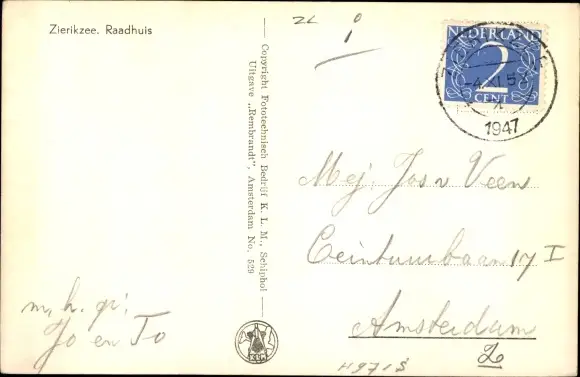 Zierikzee. Raadhuis
ZL
i
NEDERLAND
2
CENT
-4.XI.5
1947
Copyright Fototechnisch Bedrijf K. L. M., Schiphol
Uitgave „Rembrandt", Amsterdam No. 529
Mej. Jos v Veen
Ceintuurbaan 17 I
Amsterdam
Z
m. h. gr.
Jo en To
KLM
H971S